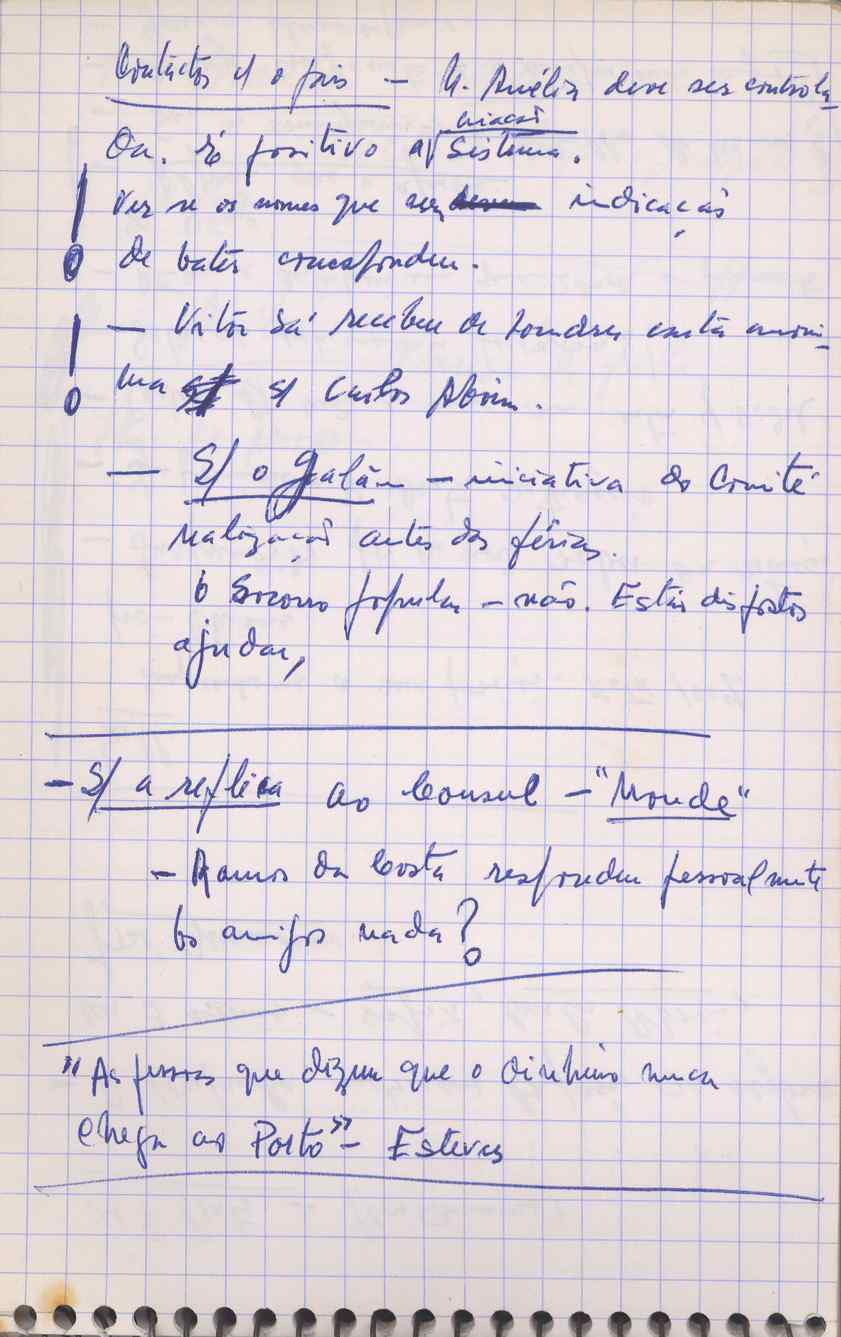 Contactos c/ o país — M. Amélia deve ser controla
da. só positivo a criação
sistema.
Ver se os nomes que indicação
de Custos correspondem.
— Vitor Sá recebeu de Londres carta anoni
ma s/ Carlos Aboim.
— S/ o Galvão — iniciativa do Comité
realização antes das férias.
o Socorro popular — não. Estão dispostos
ajudar,
— S/ a réplica ao Consul — "Monde"
— Ramos da Costa respondeu pessoalmente
Os amigos nada?
"As pessoas que dizem que o dinheiro nunca
chega ao Porto" — Esteves